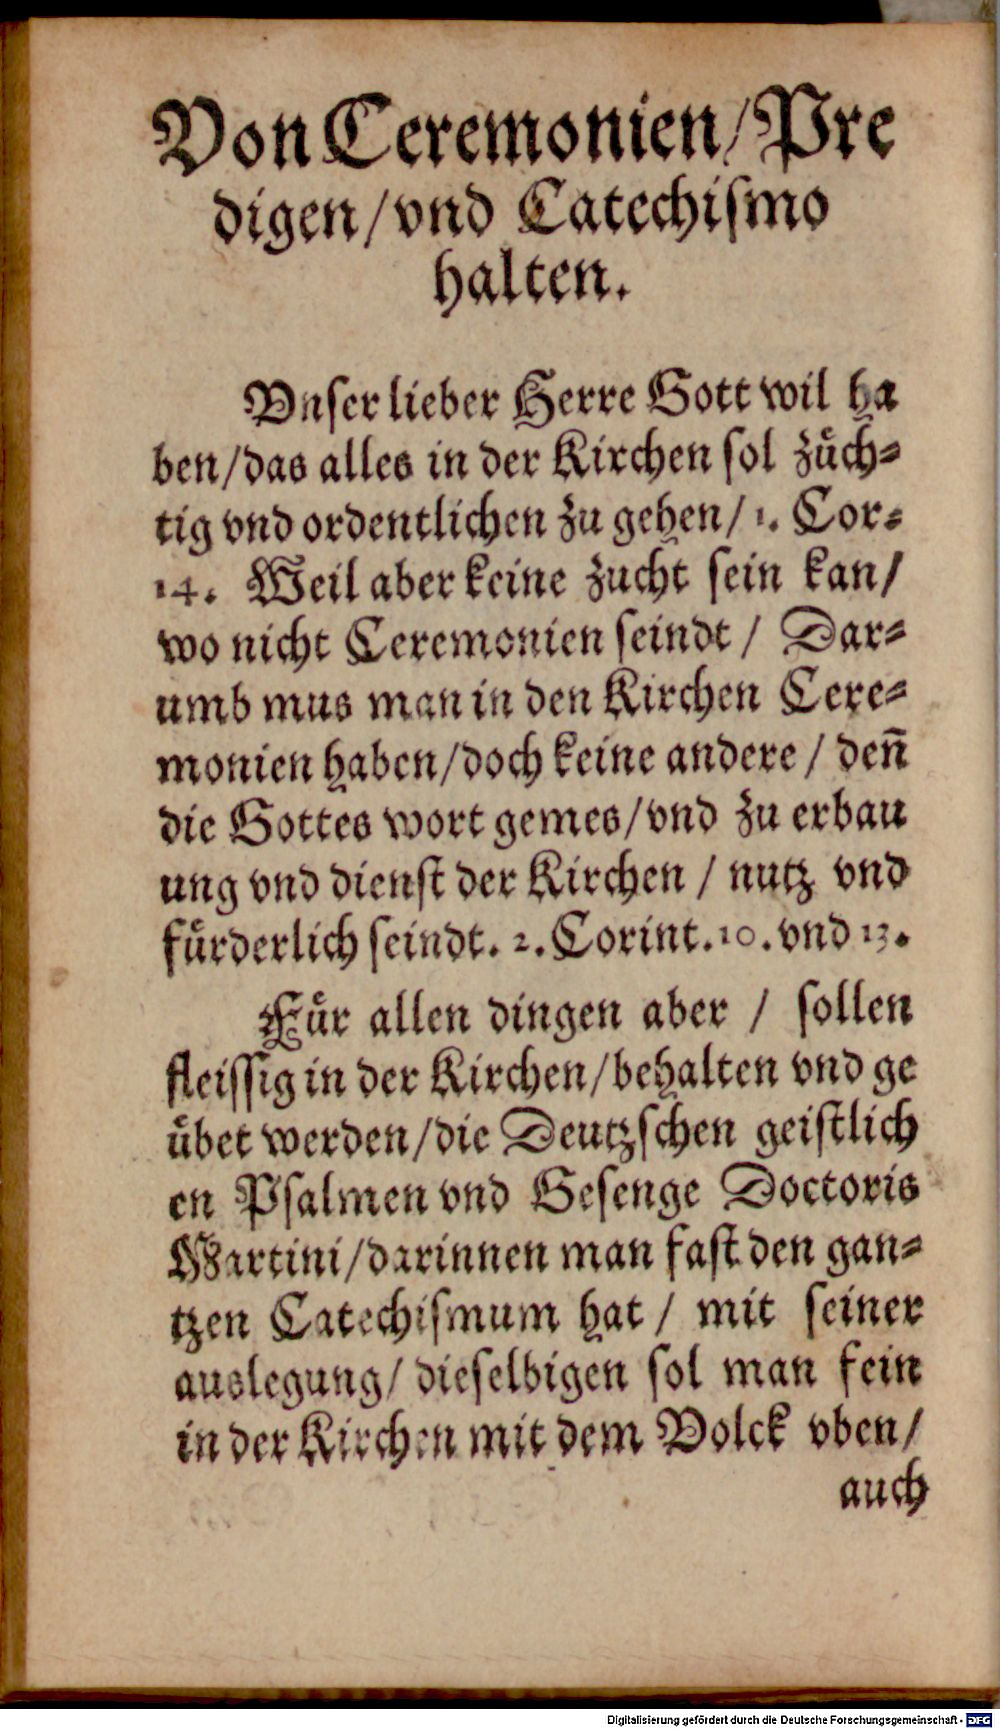 Von Ceremonien/Pre
digen/vnd Catechiſmo
halten.
Vnſer lieber Herre Gott wil ha
ben/das alles in der Kirchen ſol zuͤch⸗
tig vnd ordentlichen zu gehen/ 1. Cor⸗
14. Weil aber keine zucht ſein kan/
wo nicht Ceremonien ſeindt / Dar⸗
umb mus man in den Kirchen Cere⸗
monien haben/doch keine andere / deñ
die Gottes wort gemes/vnd zu erbau
ung vnd dienſt der Kirchen / nutz vnd
fuͤrderlich ſeindt. 2. Corint. 10. vnd 13.
Fuͤr allen dingen aber / ſollen
fleiſſig in der Kirchen/behalten vnd ge
uͤbet werden/die Deutzſchen geiſtlich
en Pſalmen vnd Geſenge Doctoris
Martini/darinnen man faſt den gan⸗
tzen Catechiſmum hat / mit ſeiner
auslegung/ dieſelbigen ſol man fein
in der Kirchen mit dem Volck vben/
auch
Digitalisierung gefördert durch die Deutsche Forschungsgemeinschaft - DFG